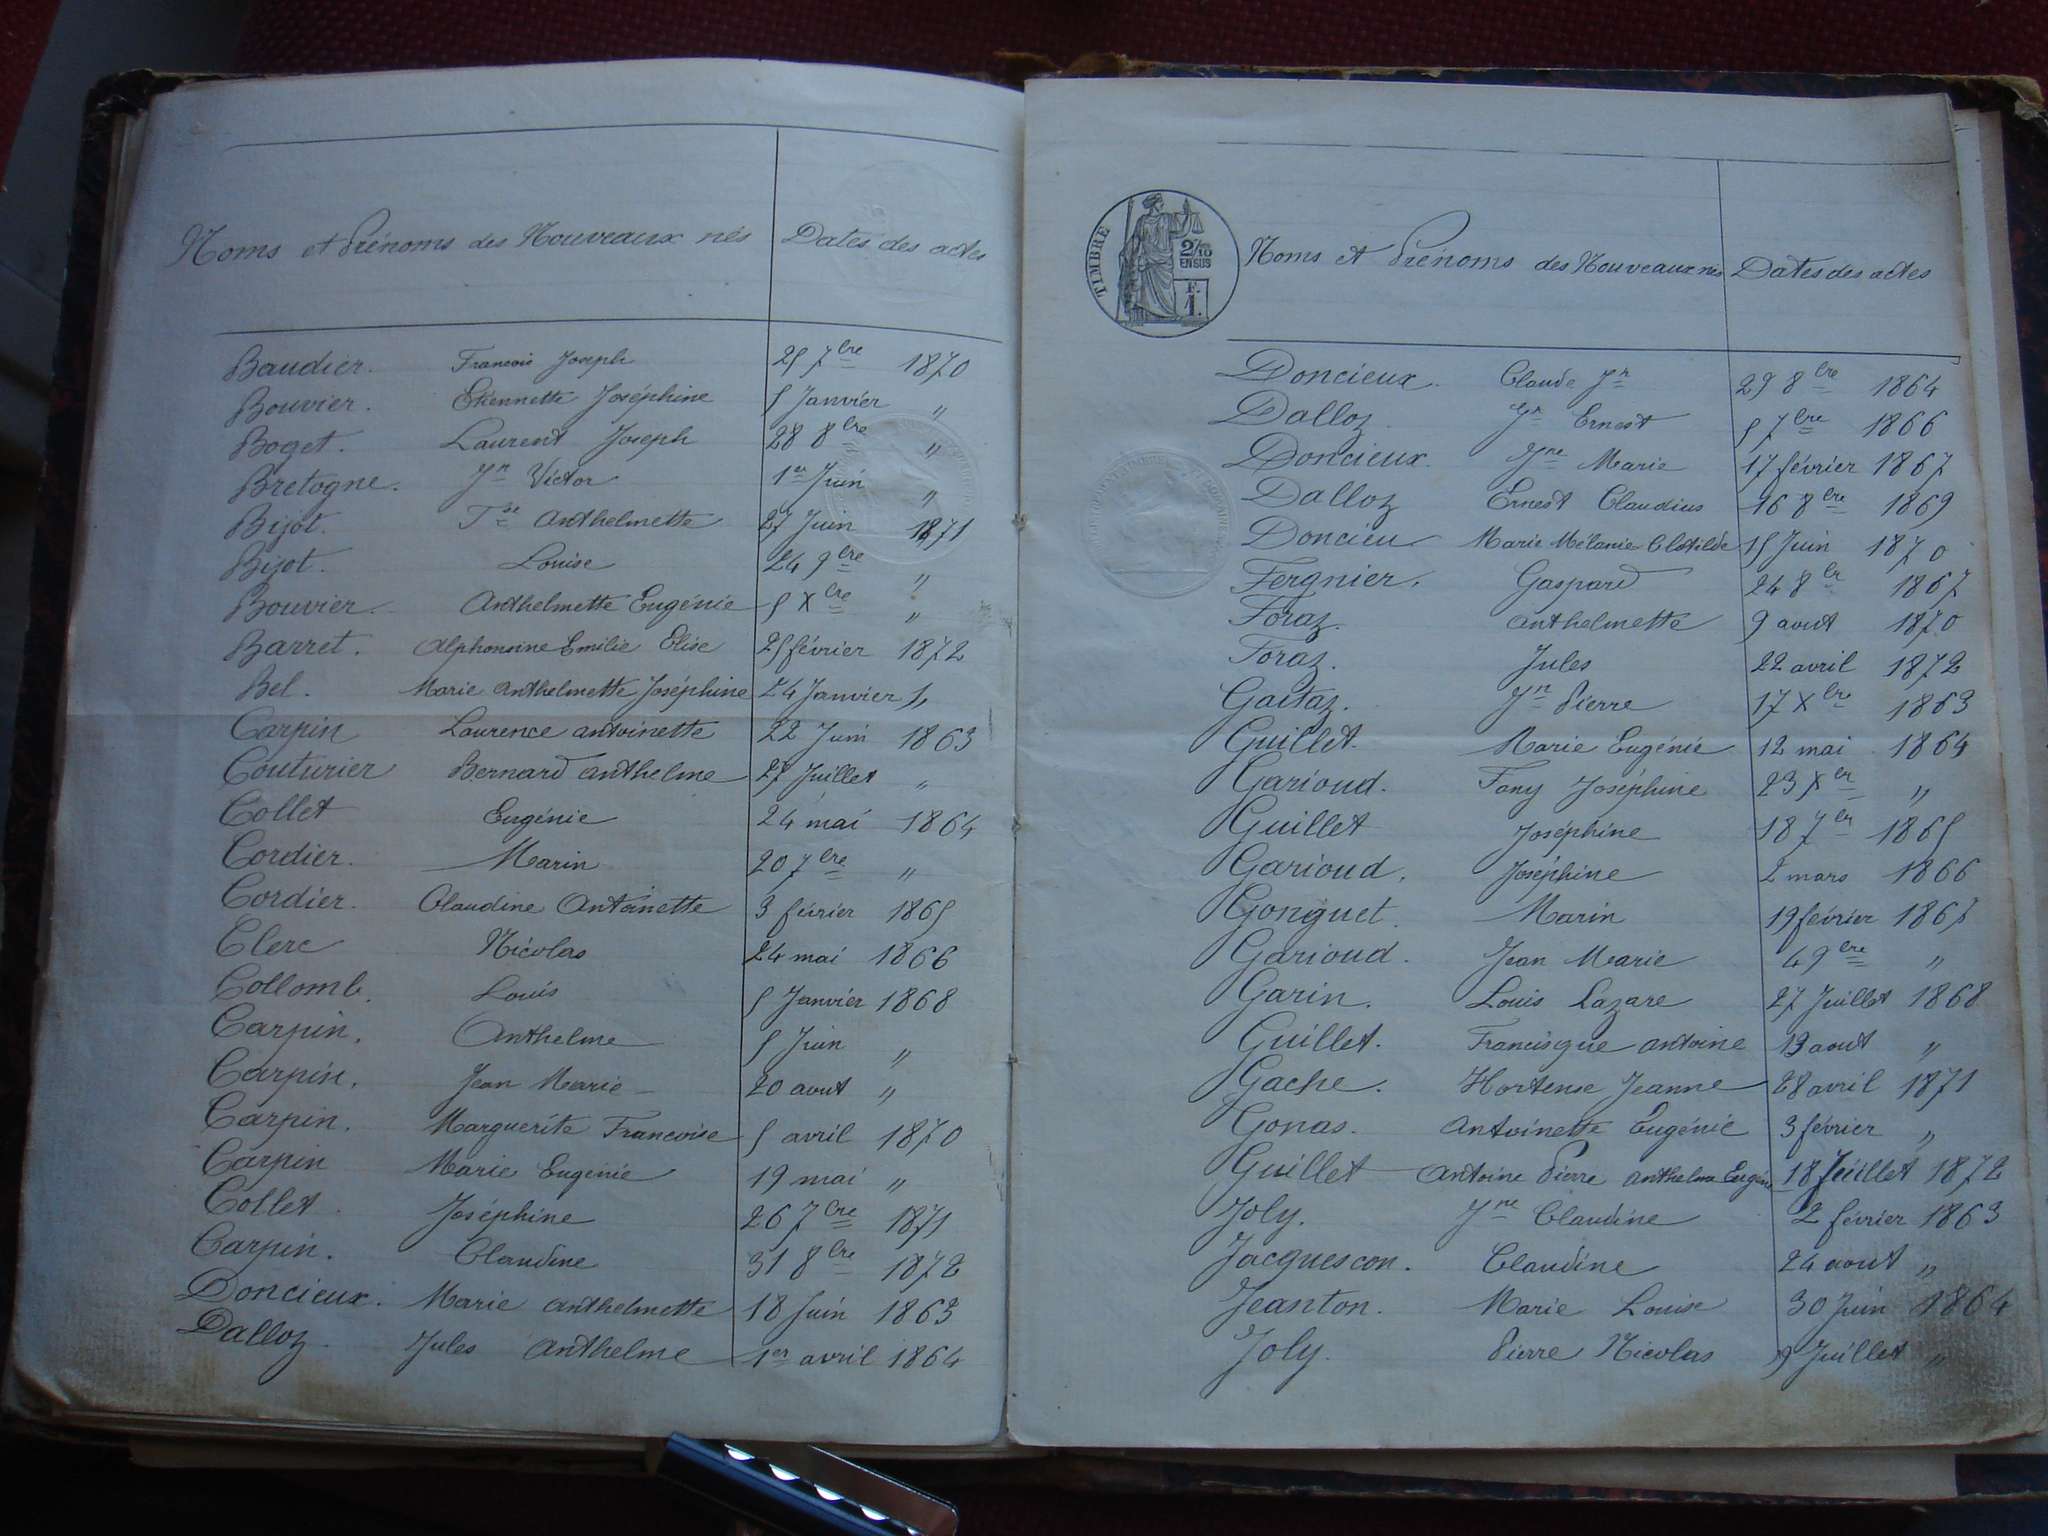 Noms et Prénoms des Nouveaux nés Dates des actes
Baudier. Francois Joseph 25 7bre 1870
Bouvier. Etiennette Joséphine 5 Janvier "
Boget. Laurent Joseph 28 8bre "
Bretogne. Jn Victor 1er Juin "
Bijot. Anthelmette 27 Juin 1871
Bijot. Louise 24 9bre "
Bouvier. Anthelmette Eugénie 5 Xbre "
Barret. Alphonsine Emilie Elise 25 février 1872
Bel. Marie Anthelmette Joséphine 24 Janvier "
Carpin Laurence antoinette 22 Juin 1863
Couturier Bernard anthelme 27 Juillet "
Collet Eugénie 24 mai 1864
Cordier. Marin 20 7bre "
Cordier. Claudine Antoinette 3 février 1865
Clerc Nicolas 24 mai 1866
Collomb. Louis 5 Janvier 1868
Carpin. Anthelme 5 Juin "
Carpin. Jean Marie 20 aout "
Carpin. Marguerite Francoise 5 avril 1870
Carpin Marie Eugénie 19 mai "
Collet. Joséphine 26 7bre 1871
Carpin. Claudine 31 8bre 1872
Doncieux. Marie anthelmette 18 Juin 1863
Dalloz. Jules Anthelme 1er avril 1864
TIMBRE
2/10
EN SUS
F.
1.
Noms et Prénoms des Nouveaux nés Dates des actes
Doncieux. Claude Jn 29 8bre 1864
Dalloz. Jn Ernest 5 7bre 1866
Doncieux. Jne Marie 17 février 1867
Dalloz Ernest Claudius 16 8bre 1869
Doncieu Marie Mélanie Clotilde 15 Juin 1870
Fergnier. Gaspard 24 8br 1867
Foraz. anthelmette 9 aout 1870
Foraz. Jules 22 avril 1872
Gaitaz. Jn Pierre 17 Xbre 1863
Guillet. Marie Eugénie 12 mai 1864
Garioud. Fany Joséphine 23 Xbr "
Guillet Joséphine 18 7br 1865
Garioud. Joséphine 2 mars 1866
Gonguet. Marin 19 février 1867
Garioud. Jean Marie 4 9bre "
Garin. Louis Lazare 27 Juillet 1868
Guillet. Francisque antoine 13 aout "
Gache. Hortense Jeanne 28 avril 1871
Gonas. Antoinette Eugénie 3 février "
Guillet Antoine Pierre anthelme Eugène 18 Juillet 1872
Joly. Jne Claudine 2 février 1863
Jacquescon. Claudine 24 aout "
Jeanton. Marie Louise 30 Juin 1864
Joly. Pierre Nicolas 9 Juillet "